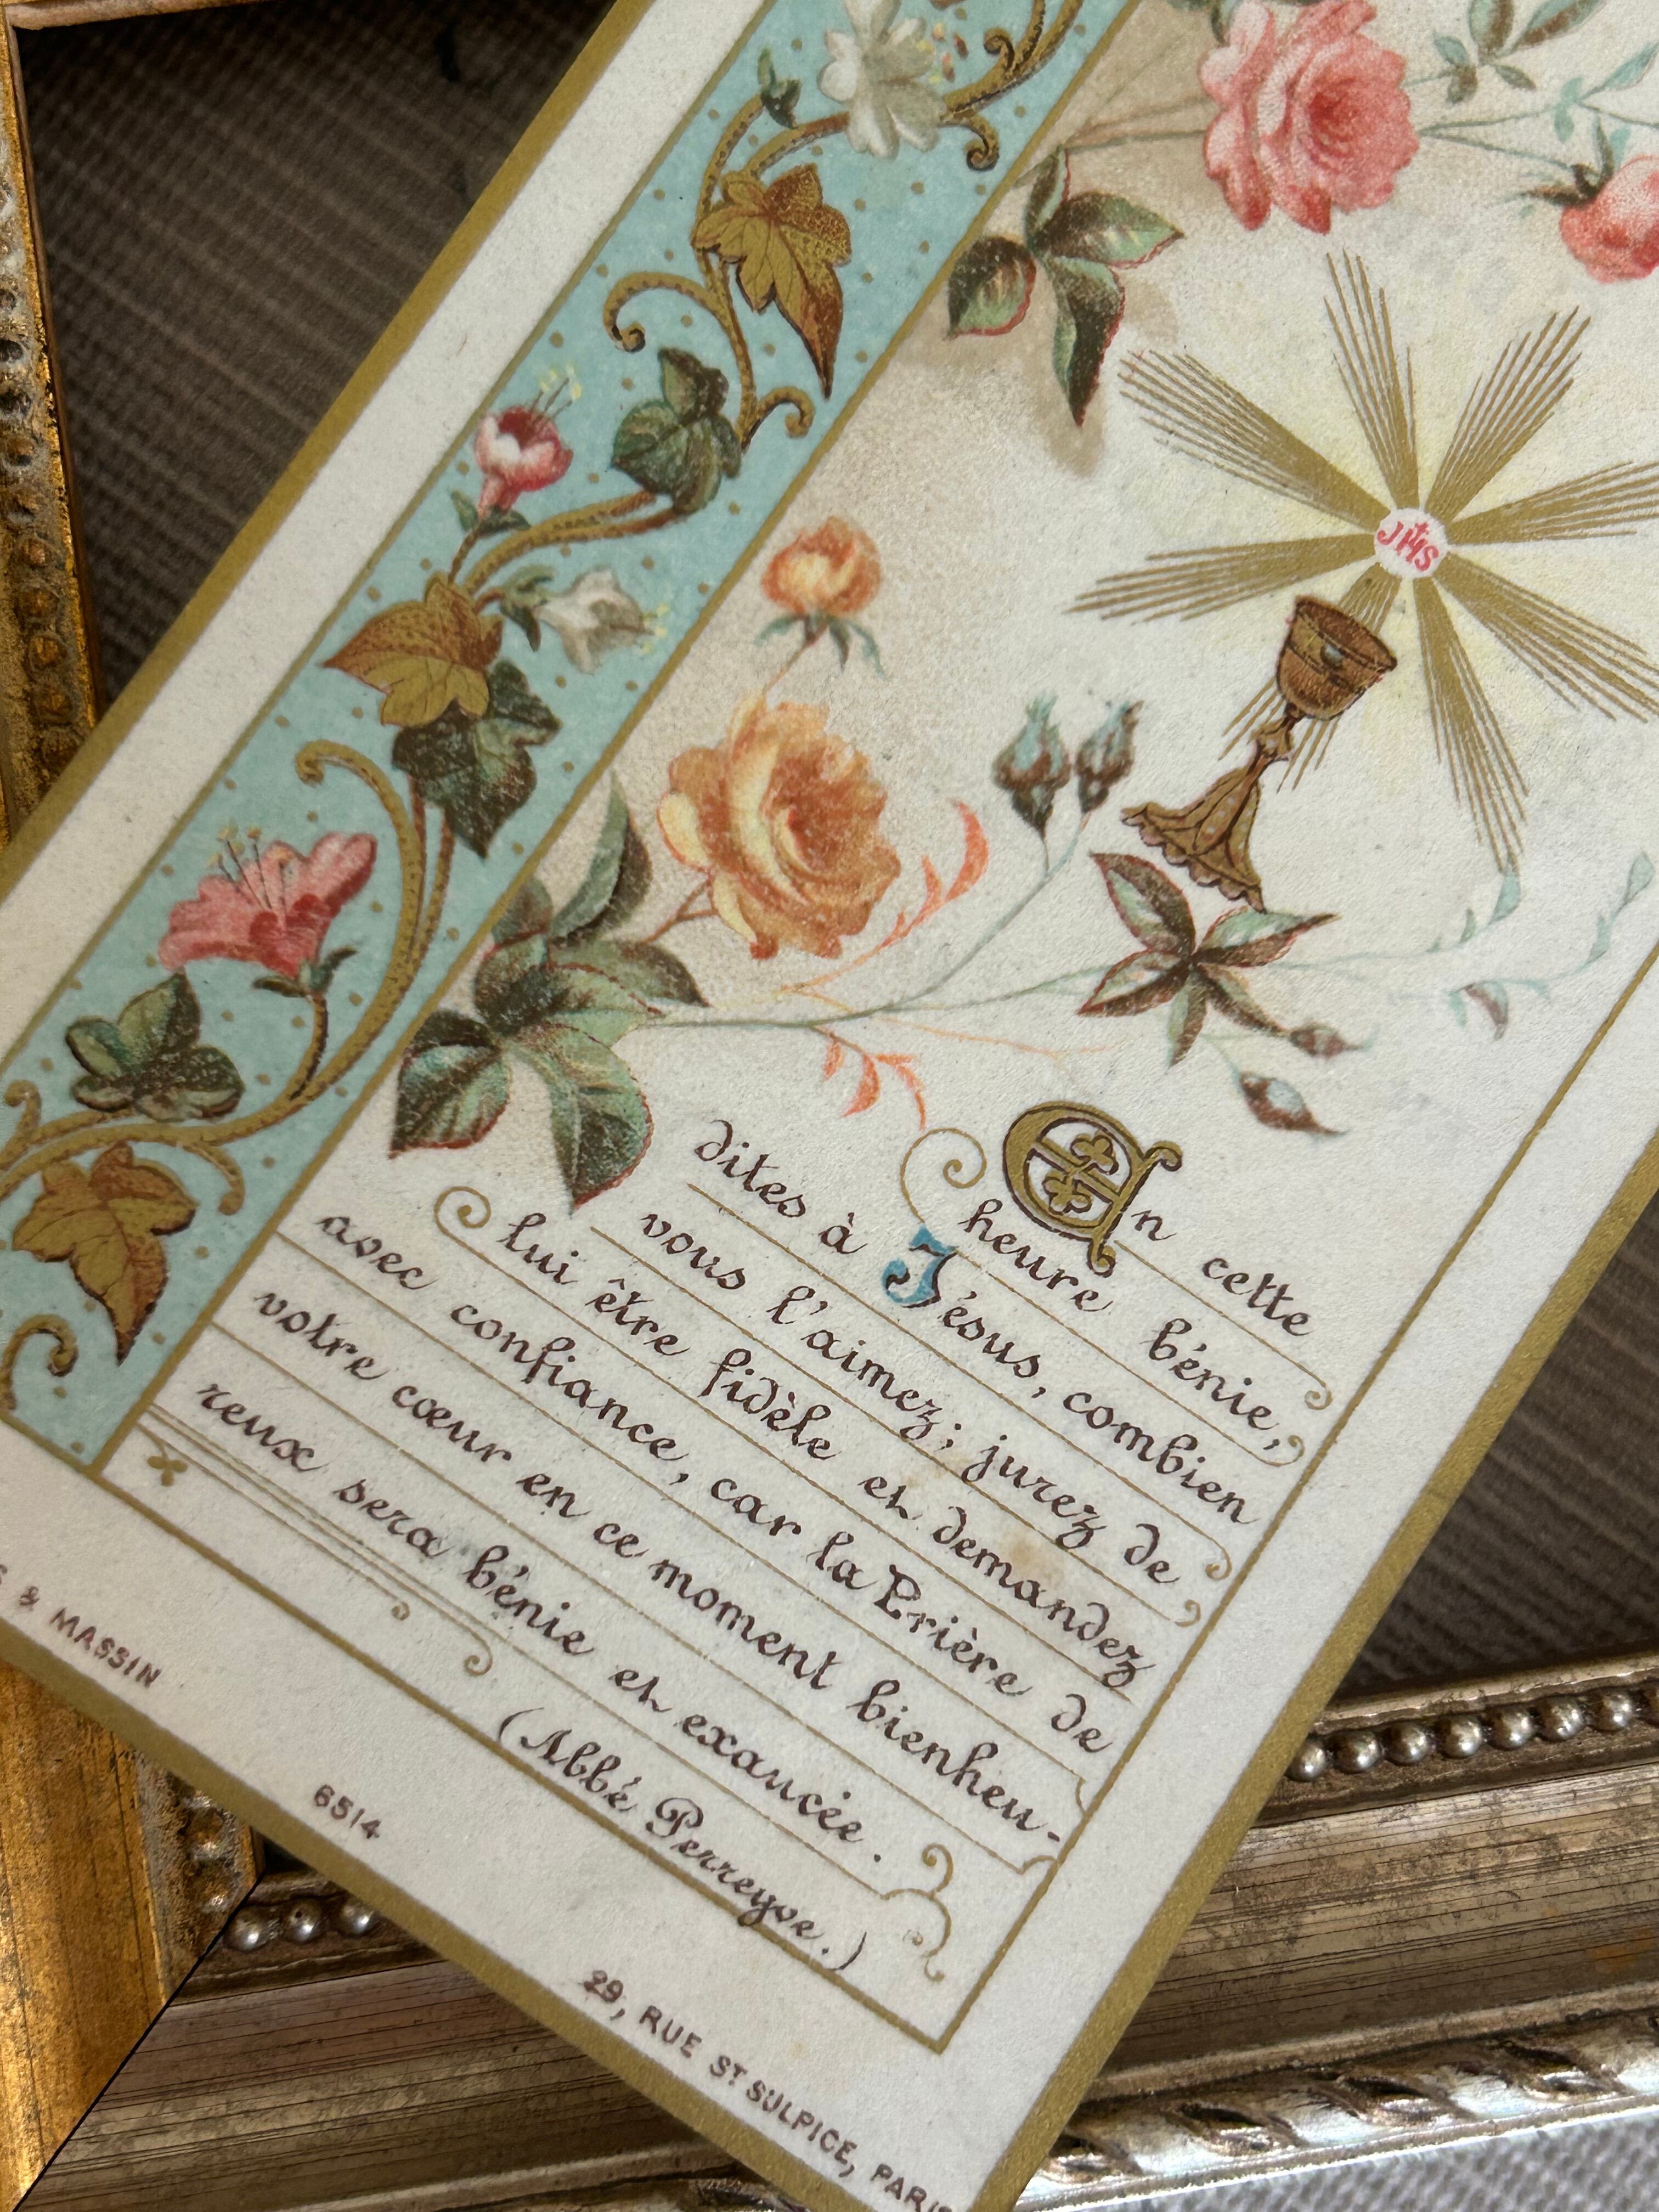 JHS
En cette
heure bénie,
dites à Jésus, combien
vous l'aimez; jurez de
lui être fidèle et demandez
avec confiance, car la Prière de
votre cœur en ce moment bienheu-
reux sera bénie et exaucée.
(Abbé Perreyve.)
& MASSIN
6514
29, RUE ST SULPICE, PARIS